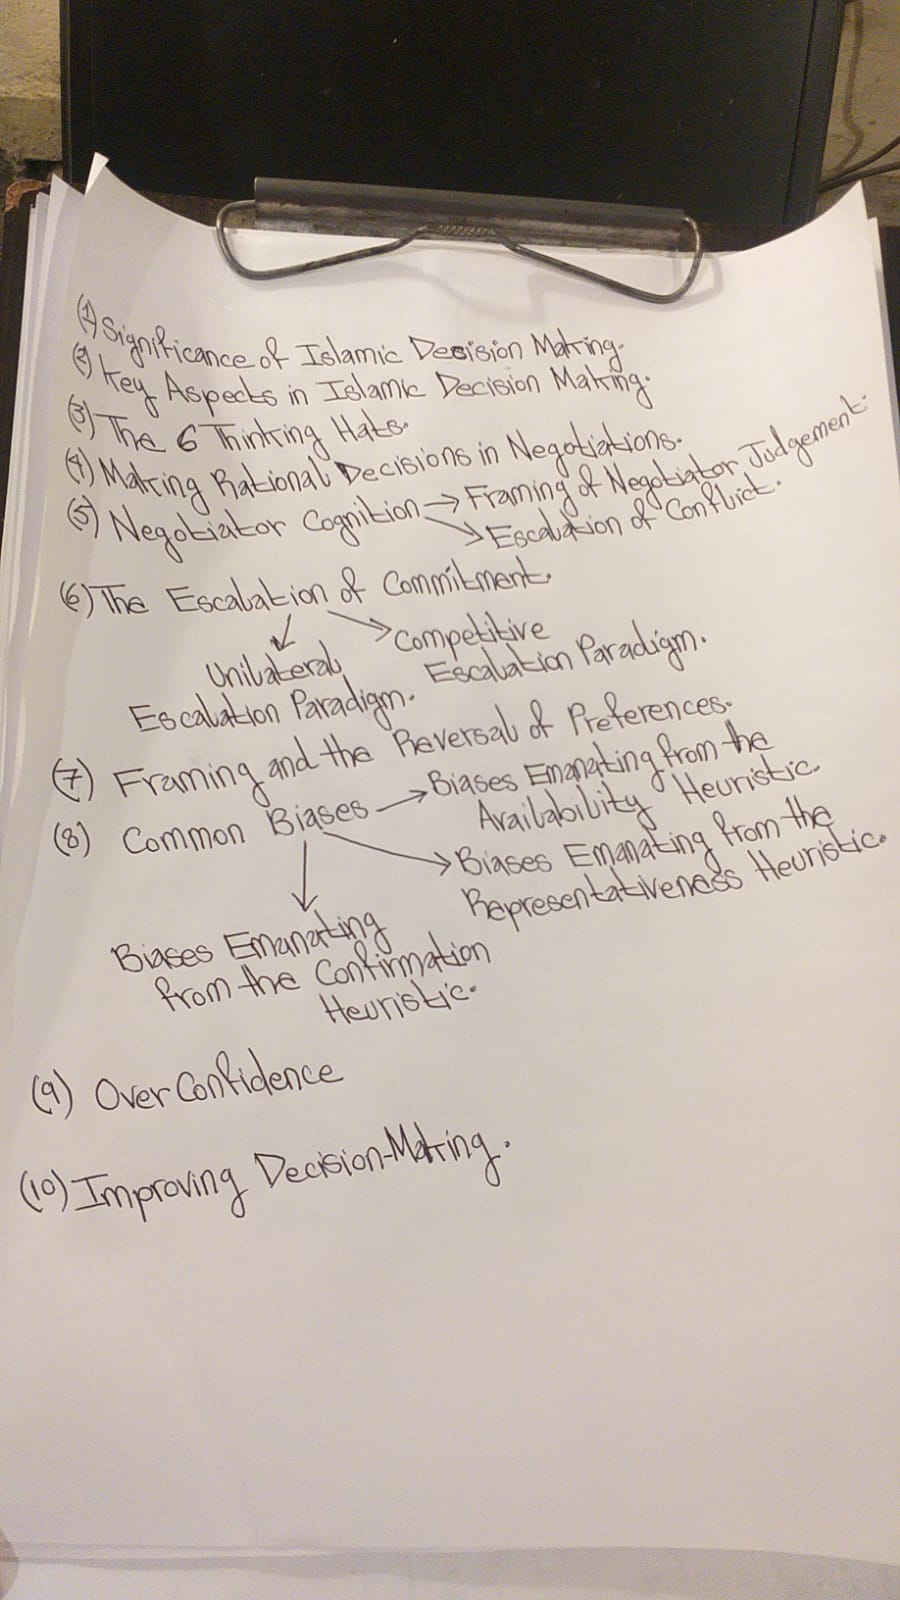 (1) Significance of Islamic Decision Making.
(2) Key Aspects in Islamic Decision Making.
(3) The 6 Thinking Hats.
(4) Making Rational Decisions in Negotiations.
(5) Negotiator Cognition → Framing of Negotiator Judgement.
→ Escalation of Conflict.
(6) The Escalation of Commitment.
Unilateral
Escalation Paradigm.
Competitive
Escalation Paradigm.
(7) Framing and the Reversal of Preferences.
(8) Common Biases → Biases Emanating from the
Availability Heuristic.
→ Biases Emanating from the
Representativeness Heuristic.
Biases Emanating
from the Confirmation
Heuristic.
(9) Over Confidence
(10) Improving Decision-Making.